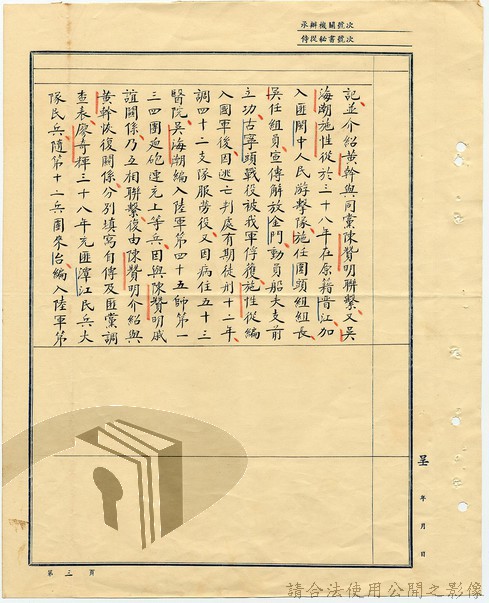 承辦機關號次
侍從秘書號次
記並介紹黃幹與同黨陳贊明聯繫又吳
海潮施性從於三十八年在原籍晉江加
入匪閩中人民游擊隊施任團頭組組長
吳任組員宣傳解放金門動員船夫支前
立功古寧頭戰役被我軍俘獲施性從編
入國軍後因逃亡判處有期徒刑十二年
調四十二支隊服勞役又因病住五十三
醫院吳海潮編入陸軍第四十五師第一
三四團迫砲連充上等兵因與陳贊明戚
誼關係乃互相聯繫復由陳贊明介紹與
黃幹恢復關係分別填寫自傳及匪黨調
查表廖奇樺三十八年充匪漳江民兵大
隊民兵隨第十二兵團來台編入陸軍第
呈
年
月
日
第三頁
請合法使用公開之影像